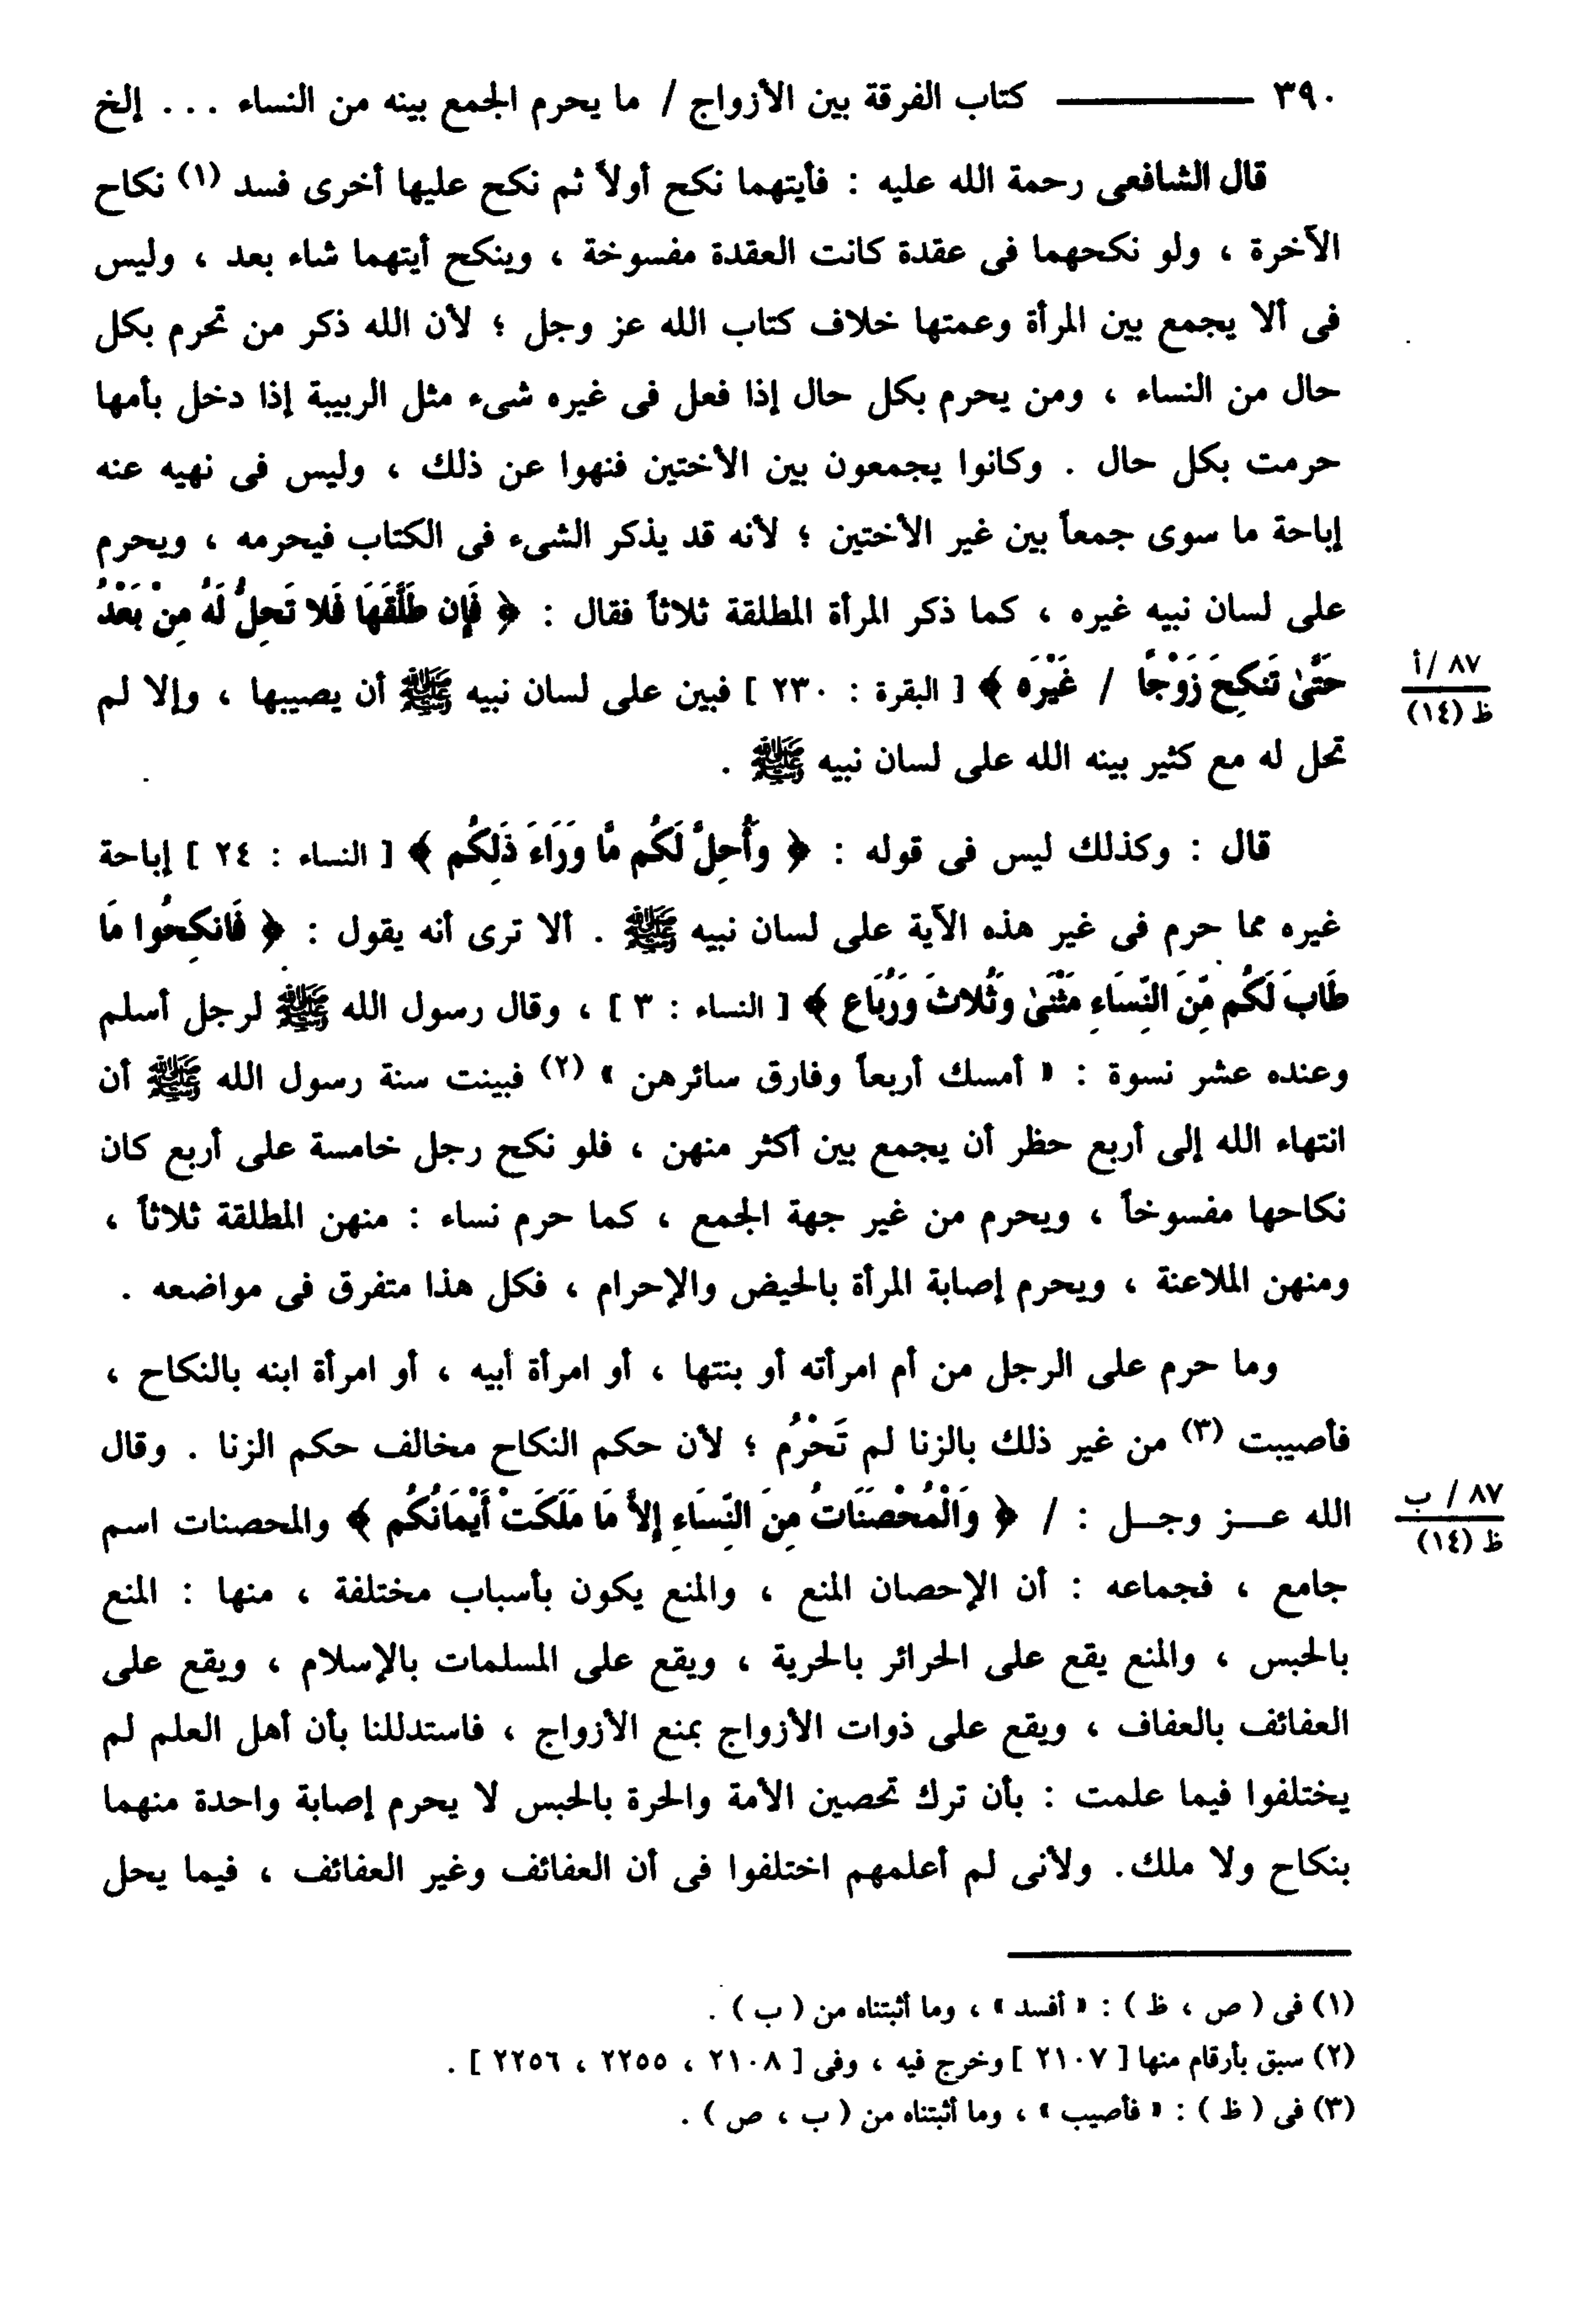 ٣٩٠ ــــــــــ كتاب الفرقة بين الأزواج / ما يحرم الجمع بينه من النساء . . . إلخ
قال الشافعى رحمة الله عليه : فأيتهما نكح أولاً ثم نكح عليها أخرى فسد (١) نكاح
الآخرة ، ولو نكحهما فى عقدة كانت العقدة مفسوخة ، وينكح أيتهما شاء بعد ، وليس
فى ألا يجمع بين المرأة وعمتها خلاف كتاب الله عز وجل ؛ لأن الله ذكر من تحرم بكل
حال من النساء ، ومن يحرم بكل حال إذا فعل فى غيره شىء مثل الربيبة إذا دخل بأمها
حرمت بكل حال . وكانوا يجمعون بين الأختين فنهوا عن ذلك ، وليس فى نهيه عنه
إباحة ما سوى جمعاً بين غير الأختين ؛ لأنه قد يذكر الشىء فى الكتاب فيحرمه ، ويحرم
على لسان نبيه غيره ، كما ذكر المرأة المطلقة ثلاثاً فقال : ﴿ فَإِن طَلَّقَهَا فَلا تَحِلُّ لَهُ مِنْ بَعْدُ
حَتَّىٰ تَنكِحَ زَوْجًا / غَيْرَه ﴾ [ البقرة : ٢٣٠ ] فبين على لسان نبيه ﷺ أن يصيبها ، وإلا لم
٨٧/ أ
ظ (١٤)
تحل له مع كثير بينه الله على لسان نبيه ﷺ .
قال : وكذلك ليس فى قوله : ﴿ وَأُحِلَّ لَكُم مَّا وَرَاءَ ذَلِكُم ﴾ [ النساء : ٢٤ ] إباحة
غيره مما حرم فى غير هذه الآية على لسان نبيه ﷺ . ألا ترى أنه يقول : ﴿ فَانكِحُوا مَا
طَابَ لَكُم مِّنَ النِّسَاءِ مَثْنَىٰ وَثُلاثَ وَرُبَاع ﴾ [ النساء : ٣ ] ، وقال رسول الله ﷺ لرجل أسلم
وعنده عشر نسوة : « أمسك أربعاً وفارق سائرهن » (٢) فبينت سنة رسول الله ﷺ أن
انتهاء الله إلى أربع حظر أن يجمع بين أكثر منهن ، فلو نكح رجل خامسة على أربع كان
نكاحها مفسوخاً ، ويحرم من غير جهة الجمع ، كما حرم نساء : منهن المطلقة ثلاثاً ،
ومنهن الملاعنة ، ويحرم إصابة المرأة بالحيض والإحرام ، فكل هذا متفرق فى مواضعه .
وما حرم على الرجل من أم امرأته أو بنتها ، أو امرأة أبيه ، أو امرأة ابنه بالنكاح ،
فأصيبت (٣) من غير ذلك بالزنا لم تَحْرُم ؛ لأن حكم النكاح مخالف حكم الزنا . وقال
الله عــز وجــل : / ﴿ وَالْمُحْصَنَاتُ مِنَ النِّسَاءِ إِلاَّ مَا مَلَكَتْ أَيْمَانُكُم ﴾ والمحصنات اسم
٨٧ / ب
ظ (١٤)
جامع ، فجماعه : أن الإحصان المنع ، والمنع يكون بأسباب مختلفة ، منها : المنع
بالحبس ، والمنع يقع على الحرائر بالحرية ، ويقع على المسلمات بالإسلام ، ويقع على
العفائف بالعفاف ، ويقع على ذوات الأزواج بمنع الأزواج ، فاستدللنا بأن أهل العلم لم
يختلفوا فيما علمت : بأن ترك تحصين الأمة والحرة بالحبس لا يحرم إصابة واحدة منهما
بنكاح ولا ملك. ولأنى لم أعلمهم اختلفوا فى أن العفائف وغير العفائف ، فيما يحل
(١) فى ( ص ، ظ ) : « أفسد » ، وما أثبتناه من ( ب ) .
(٢) سبق بأرقام منها [ ٢١٠٧ ] وخرج فيه ، وفى [ ٢١٠٨ ، ٢٢٥٥ ، ٢٢٥٦ ] .
(٣) فى ( ظ ) : « فأصيب » ، وما أثبتناه من ( ب ، ص ) .